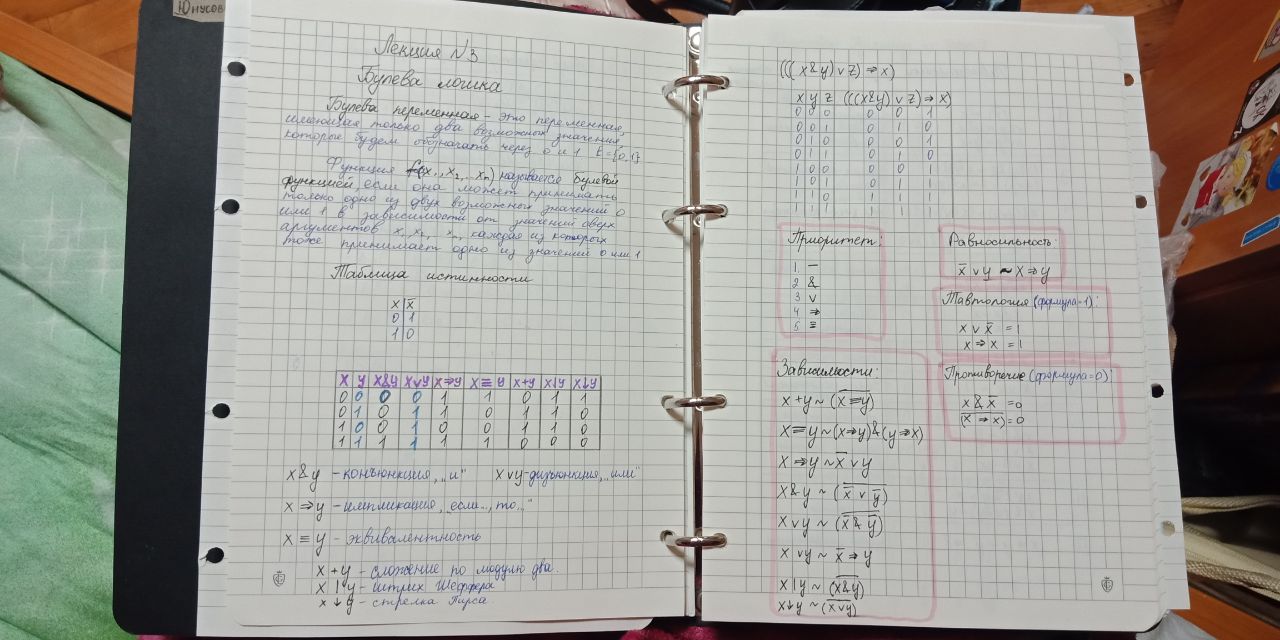 Юнусов
Лекция №3
Булева логика
Булева переменная - это переменная,
имеющая только два возможных значения,
которые будем обозначать через 0 и 1 E={0,1}
Функция f(x₁, x₂,...xₙ) называется булевой
функцией, если она может принимать
только одно из двух возможных значений 0
или 1 в зависимости от значений своих
аргументов x₁ x₂, xₙ каждая из которых
тоже принимает одно из значений 0 или 1
Таблица истинности
x | x̅
0 | 1
1 | 0
x | y | x&y | x∨y | x⇒y | x≡y | x+y | x|y | x↓y
0 | 0 | 0 | 0 | 1 | 1 | 0 | 1 | 1
0 | 1 | 0 | 1 | 1 | 0 | 1 | 1 | 0
1 | 0 | 0 | 1 | 0 | 0 | 1 | 1 | 0
1 | 1 | 1 | 1 | 1 | 1 | 0 | 0 | 0
x&y - конъюнкция, „и" x∨y - дизъюнкция, „или"
x⇒y - импликация, „если.., то.."
x≡y - эквивалентность
x+y - сложение по модулю два.
x|y - штрих Шеффера
x↓y - стрелка Пирса.
(((x&y)∨z)⇒x)
x y z (((x&y)∨z)⇒x)
0 0 0 0 0 1
0 0 1 0 1 0
0 1 0 0 0 1
0 1 1 0 1 0
1 0 0 0 0 1
1 0 1 0 1 1
1 1 0 1 1 1
1 1 1 1 1 1
Приоритет:
1. —
2 &
3 ∨
4 ⇒
5 ≡
Равносильность:
x̅∨y ~ x⇒y
Тавтология (формула=1):
x∨x̅ = 1
x⇒x = 1
Противоречие (формула=0):
x&x̅ = 0
(x̅ ̅⇒̅ ̅x̅) = 0
Зависимости:
x+y ~ (x̅ ̅≡̅ ̅y̅)
x≡y ~ (x⇒y)&(y⇒x)
x⇒y ~ x̅∨y
x&y ~ (x̅ ∨ y̅)̅
x∨y ~ (x̅ & y̅)̅
x∨y ~ x̅⇒y
x|y ~ (x̅&̅y̅)
x↓y ~ (x̅∨̅y̅)